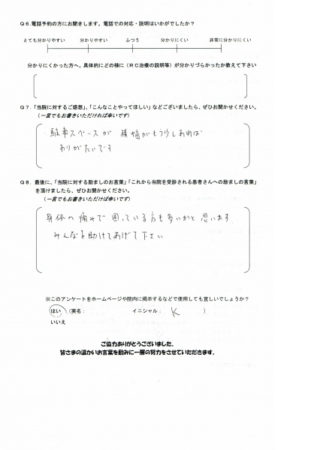 Q6.電話予約の方にお聞きします。電話での対応・説明はいかがでしたか？
とても分かりやすい　分かりやすい　ふつう　分かりにくい　非常に分かりにくい
分かりにくかった方へ、具体的にどの様に（ＲＣ治療の説明等）が分かりづらかったか教えて下さい
Q7.「当院に対するご感想」、「こんなことやってほしい」などございましたら、ぜひお聞かせください。
（一言でもお書きいただければ幸いです）
駐車スペースが 横幅がもう少しあれば
ありがたいです
Q8.最後に、「当院に対する励ましのお言葉」「これから当院を受診される患者さんへの励ましの言葉」
を頂けましたら、ぜひお聞かせください。
（一言でもお書きいただければ幸いです）
身体の痛みで困っている方も多いかと思います
みんなを助けてあげて下さい
※このアンケートをホームページや院内に掲示するなどで使用しても宜しいでしょうか？
はい　（実名：　イニシャル：　K　）
いいえ
ご協力ありがとうございました。
皆さまの温かいお言葉を励みに一層の努力をさせていただきます。